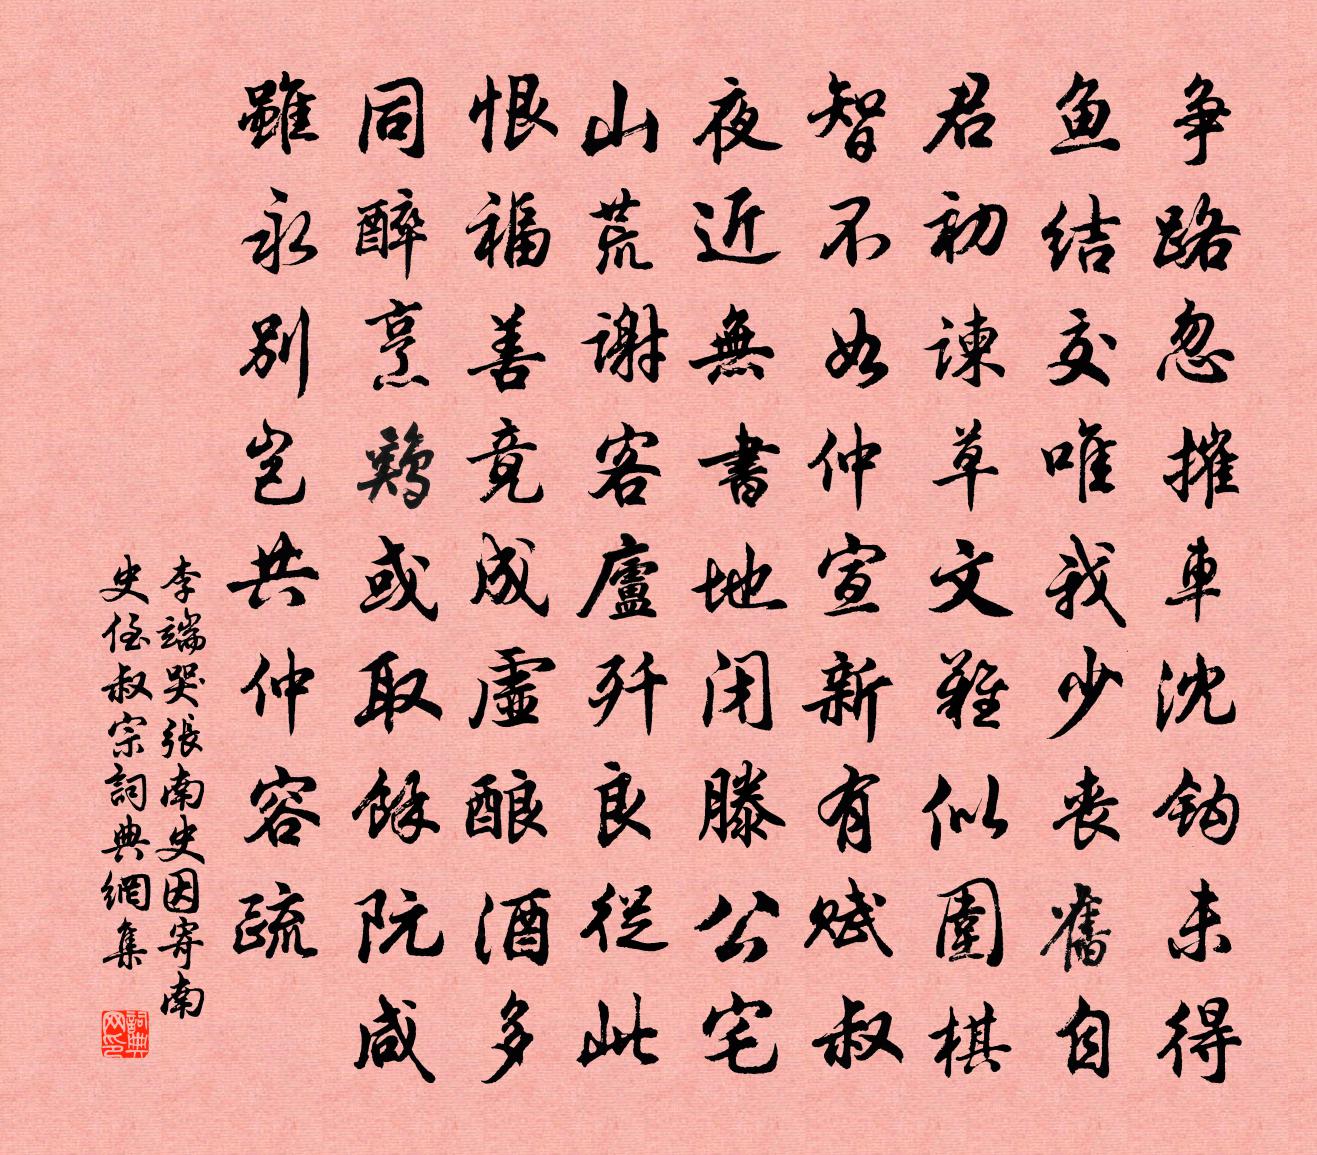 争路忽摧車沈鈎未得
魚結交唯我少喪舊自
君初諫草文難似圍棋
智不如仲宣新有賦叔
夜近無書地閉滕公宅
山荒謝客廬歼良從此
恨福善竟成虛酿酒多
同醉烹鷄或取餘阮咸
雖永別岂共仲容疏
李端哭張南史因寄南
史侄叔宗詞典網集
詞典网印